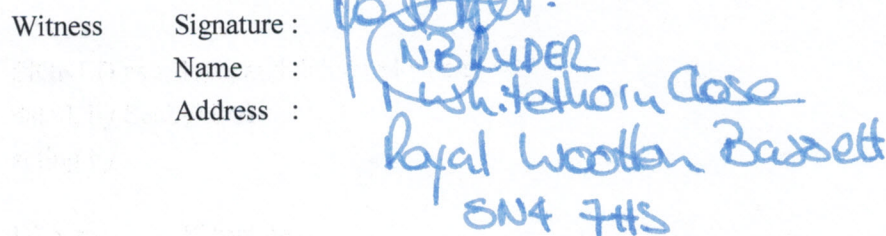 Witness Signature :
Name : NB RYDER
Address : 1 Whitethorn Close
Royal Wootton Bassett
SN4 7HS